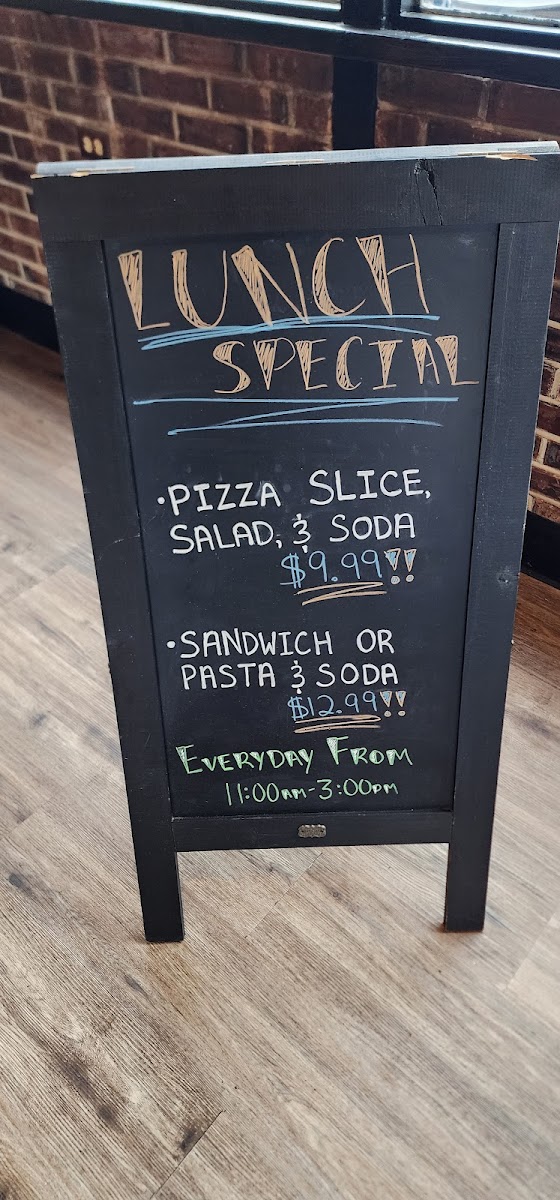 LUNCH
SPECIAL
•PIZZA SLICE,
SALAD, & SODA
$9.99!!
•SANDWICH OR
PASTA & SODA
$12.99!!
EVERYDAY FROM
11:00AM-3:00PM